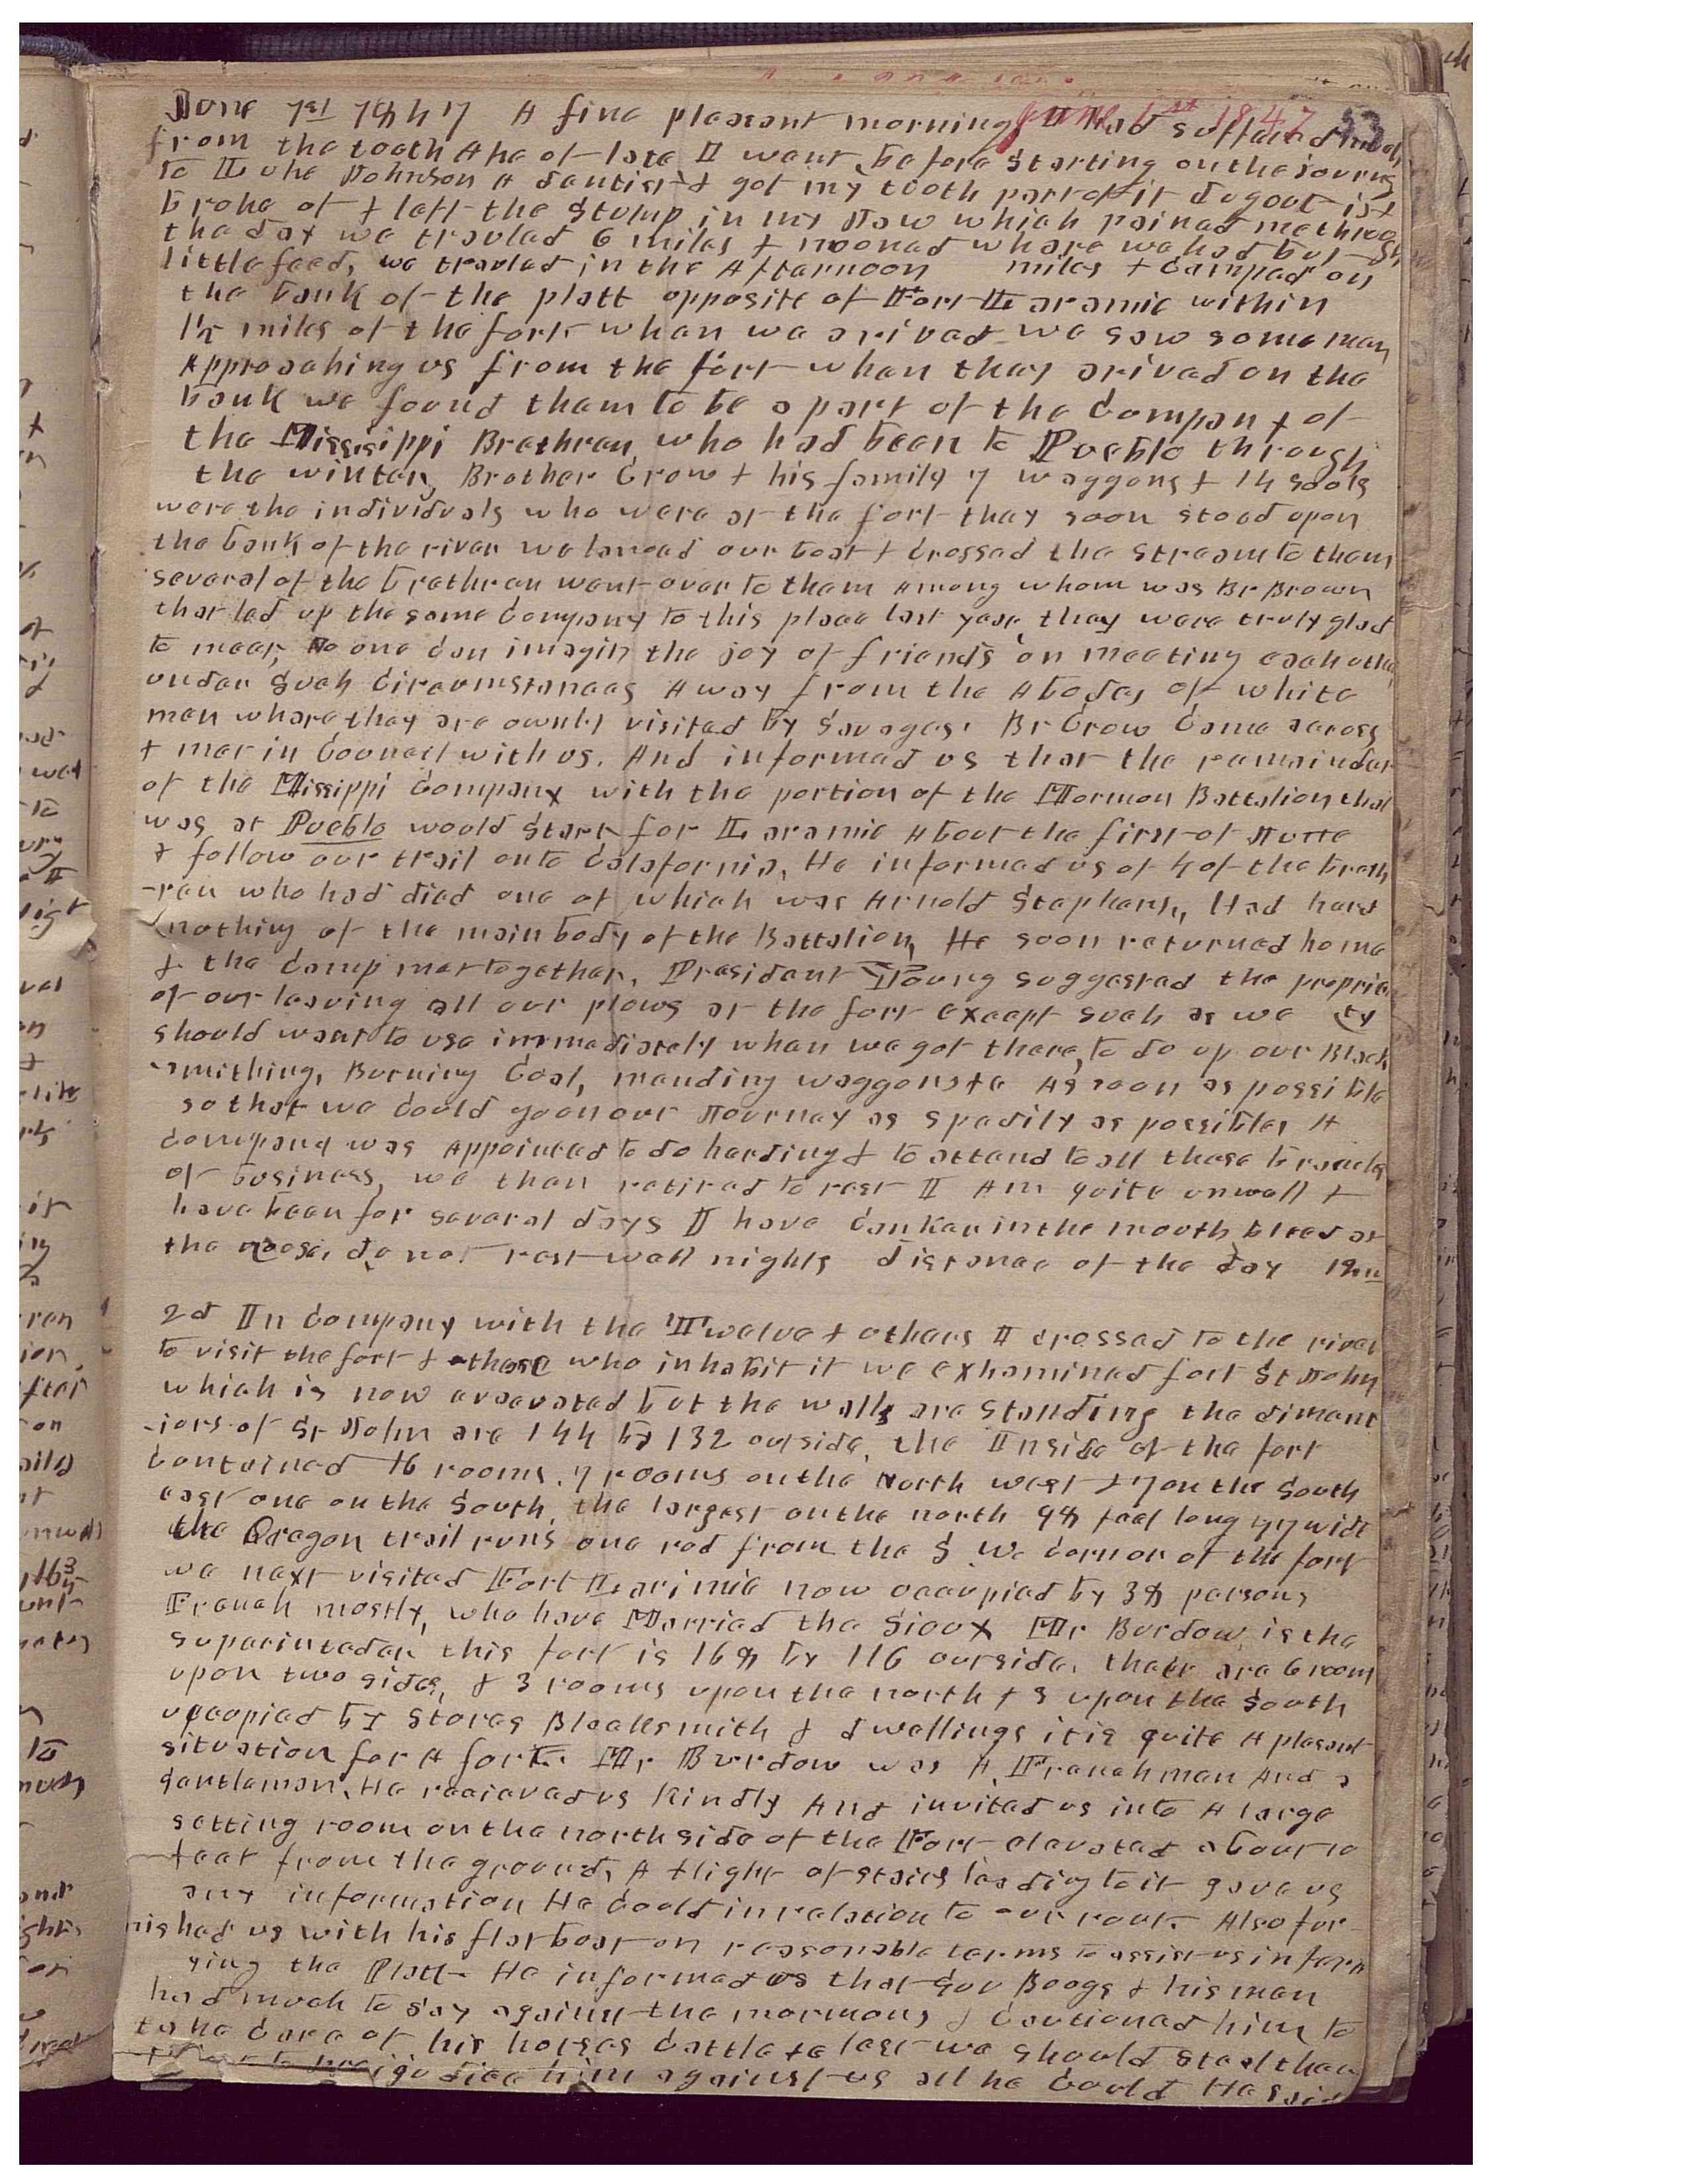 June 1st 1847 A fine pleasant morning I had suffered much
June 1st 1847 53
from the tooth Ake of late I went before starting on the journey
to Luke Johnson A dentist & got my tooth part of it dugout it
broke of & left the stump in my Jaw which pained me through
the day we travled 6 miles & nooned where we had but
little feed, we travled in the Afternoon miles & camped on
the bank of the platt opposite of Fort Laramie within
1½ miles of the fort when we arived we saw some men
Approaching us from the fort when they arived on the
bank we found them to be a part of the Company of
the Mississippi Brethren who had been to Pueblo through
the winter, Brother Crow & his family 7 waggons & 14 souls
were the individuals who were at the fort they soon stood upon
the bank of the river we lanced our boat & crossed the stream to them
several of the brethren went over to them Among whom was Br Brown
that led up the same company to this place last year they were truly glad
to meet, No one can imagin the joy of friends on meeting each other
under such circumstances Away from the Abodes of white
men where they are ownly visited by Savages. Br Crow Came across
& met in Council with us. And informed us that the remainder
of the Missippi Company with the portion of the Mormon Battalion that
was at Pueblo would start for Laramie About the first of June
& follow our trail onto Calafornia, He informed us of 4 of the breth
-ren who had died one of which was Arnold Stephens, Had hard
nothing of the main body of the Battalion, He soon returned home
& the camp met together, President Young suggested the proprie
of our leaving all our plows at the fort except such as we ty
should want to use immediately when we got there, to do up our Black
-smithing, Burning Coal, mending waggons &c As soon as possible
so that we could go on our Journey as spedily as possible, A
company was Appointed to do herding & to attend to all those branches
of business, we then retired to rest I Am quite unwell &
have been for several days I have canker in the mouth bleed at
the nose, do not rest well nights distance of the day 12 m
2d In company with the Twelve & others I crossed to the river
to visit the fort & those who inhabit it we exhamined fort St John
which is now evacuated but the walls are standing the diment
-iors of St John are 144 by 132 outside, the Inside of the fort
contained 16 rooms, 7 rooms on the North west & 7 on the South
east one on the South, the largest on the north 98 feet long 47 wide
the Oregon trail runs one rod from the S. W. cornor of the fort
we next visited Fort Larimie now occupied by 38 persons
French mostly, who have Married the Sioux Mr Burdow is the
superintedan this fort is 168 by 116 outside, their are 6 room
upon two sides, & 3 rooms upon the north & 3 upon the South
upcopied by Stores Blacksmith & dwellings it is quite A plesant
situation for A fort. Mr Burdow was A Frenchman And a
gentleman. He recieved us kindly And invited us into A large
setting room on the north side of the Fort elevated about 10
feet from the ground, A flight of stairs leading to it gave us
any information He could in relation to our rout. Also fur-
nished us with his flatboat on reasonable terms to assist us in ferri
ging the Platt. He informed us that Gov Boogs & his men
had much to say against the mormons & cautioned him to
take care of his horses cattle &c lest we should steal them
preigudice him against us all he could He said